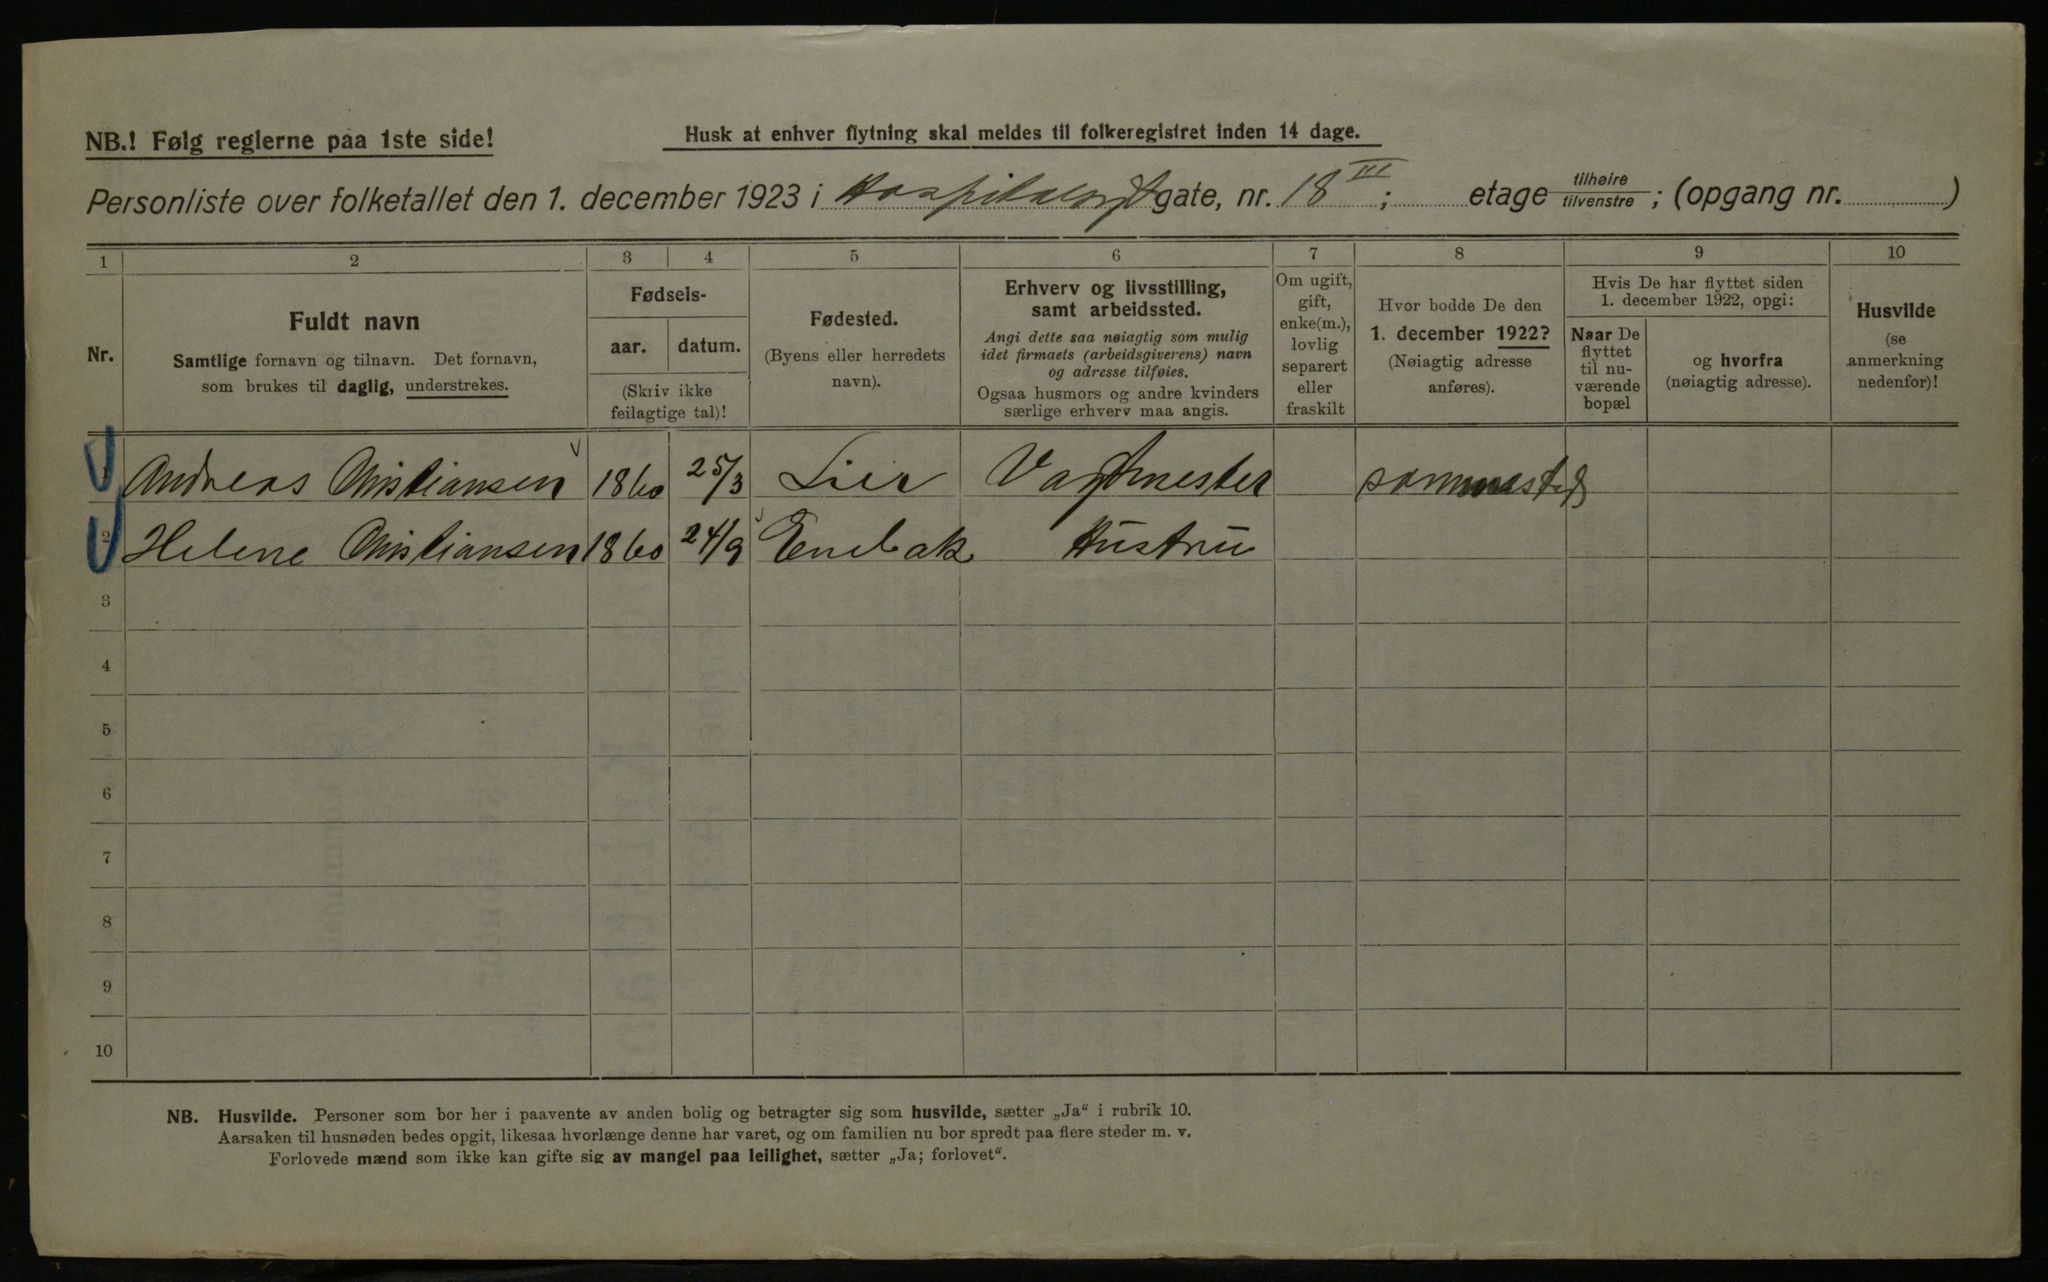 NB.! Følg reglerne paa 1ste side!
Husk at enhver flytning skal meldes til folkeregistret inden 14 dage.
Personliste over folketallet den 1. december 1923 i gate, nr. 18 III; etage tilhøire tilvenstre; (opgang nr. )
1 2 3 4 5 6 7 8 9 10
Nr.
Fuldt navn
Samtlige fornavn og tilnavn. Det fornavn,
som brukes til daglig, understrekes.
Fødsels-
aar. datum.
(Skriv ikke
feilagtige tal)!
Fødested.
(Byens eller herredets
navn).
Erhverv og livsstilling,
samt arbeidssted.
Angi dette saa nøiagtig som mulig
idet firmaets (arbeidsgiverens) navn
og adresse tilføies.
Ogsaa husmors og andre kvinders
særlige erhverv maa angis.
Om ugift,
gift,
enke(m.),
lovlig
separert
eller
fraskilt
Hvor bodde De den
1. december 1922?
(Nøiagtig adresse
anføres).
Hvis De har flyttet siden
1. december 1922, opgi:
Naar De
flyttet
til nu-
værende
bopæl
og hvorfra
(nøiagtig adresse).
Husvilde
(se
anmerkning
nedenfor)!
1 Andreas Christiansen 1860 25/3 Lier Vagtmester sammested
2 Helene Christiansen 1860 24/9 Enebak Hustru
3
4
5
6
7
8
9
10
NB. Husvilde. Personer som bor her i paavente av anden bolig og betragter sig som husvilde, sætter „Ja“ i rubrik 10.
Aarsaken til husnøden bedes opgit, likesaa hvorlænge denne har varet, og om familien nu bor spredt paa flere steder m. v.
Forlovede mænd som ikke kan gifte sig av mangel paa leilighet, sætter „Ja; forlovet“.